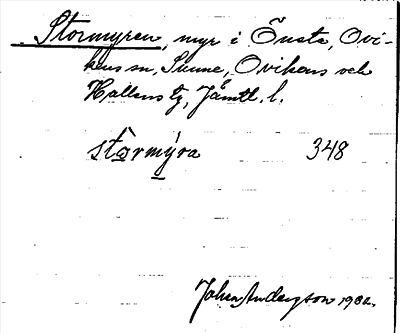 Stormyren, myr i Önsta, Ovi-
kens sn, Sunne, Ovikens och
Hallens tg, Jämtl. l.
stormýra 348
Johan Anderzson 1902.